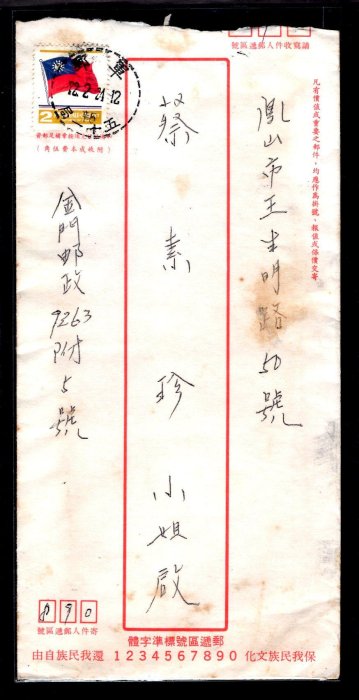 請寫收件人郵遞區號
凡有價值或重要之郵件，均應作為掛號、報值或保價交寄
鳳山市王生明路50號
蔡素珍小姐啟
金門郵政9263附5號
軍郵
72.2.21.12
(附執或本資伍角)
890
寄件人郵遞區號
郵遞區號標準字體
保我民族文化 1234567890 還我民族自由